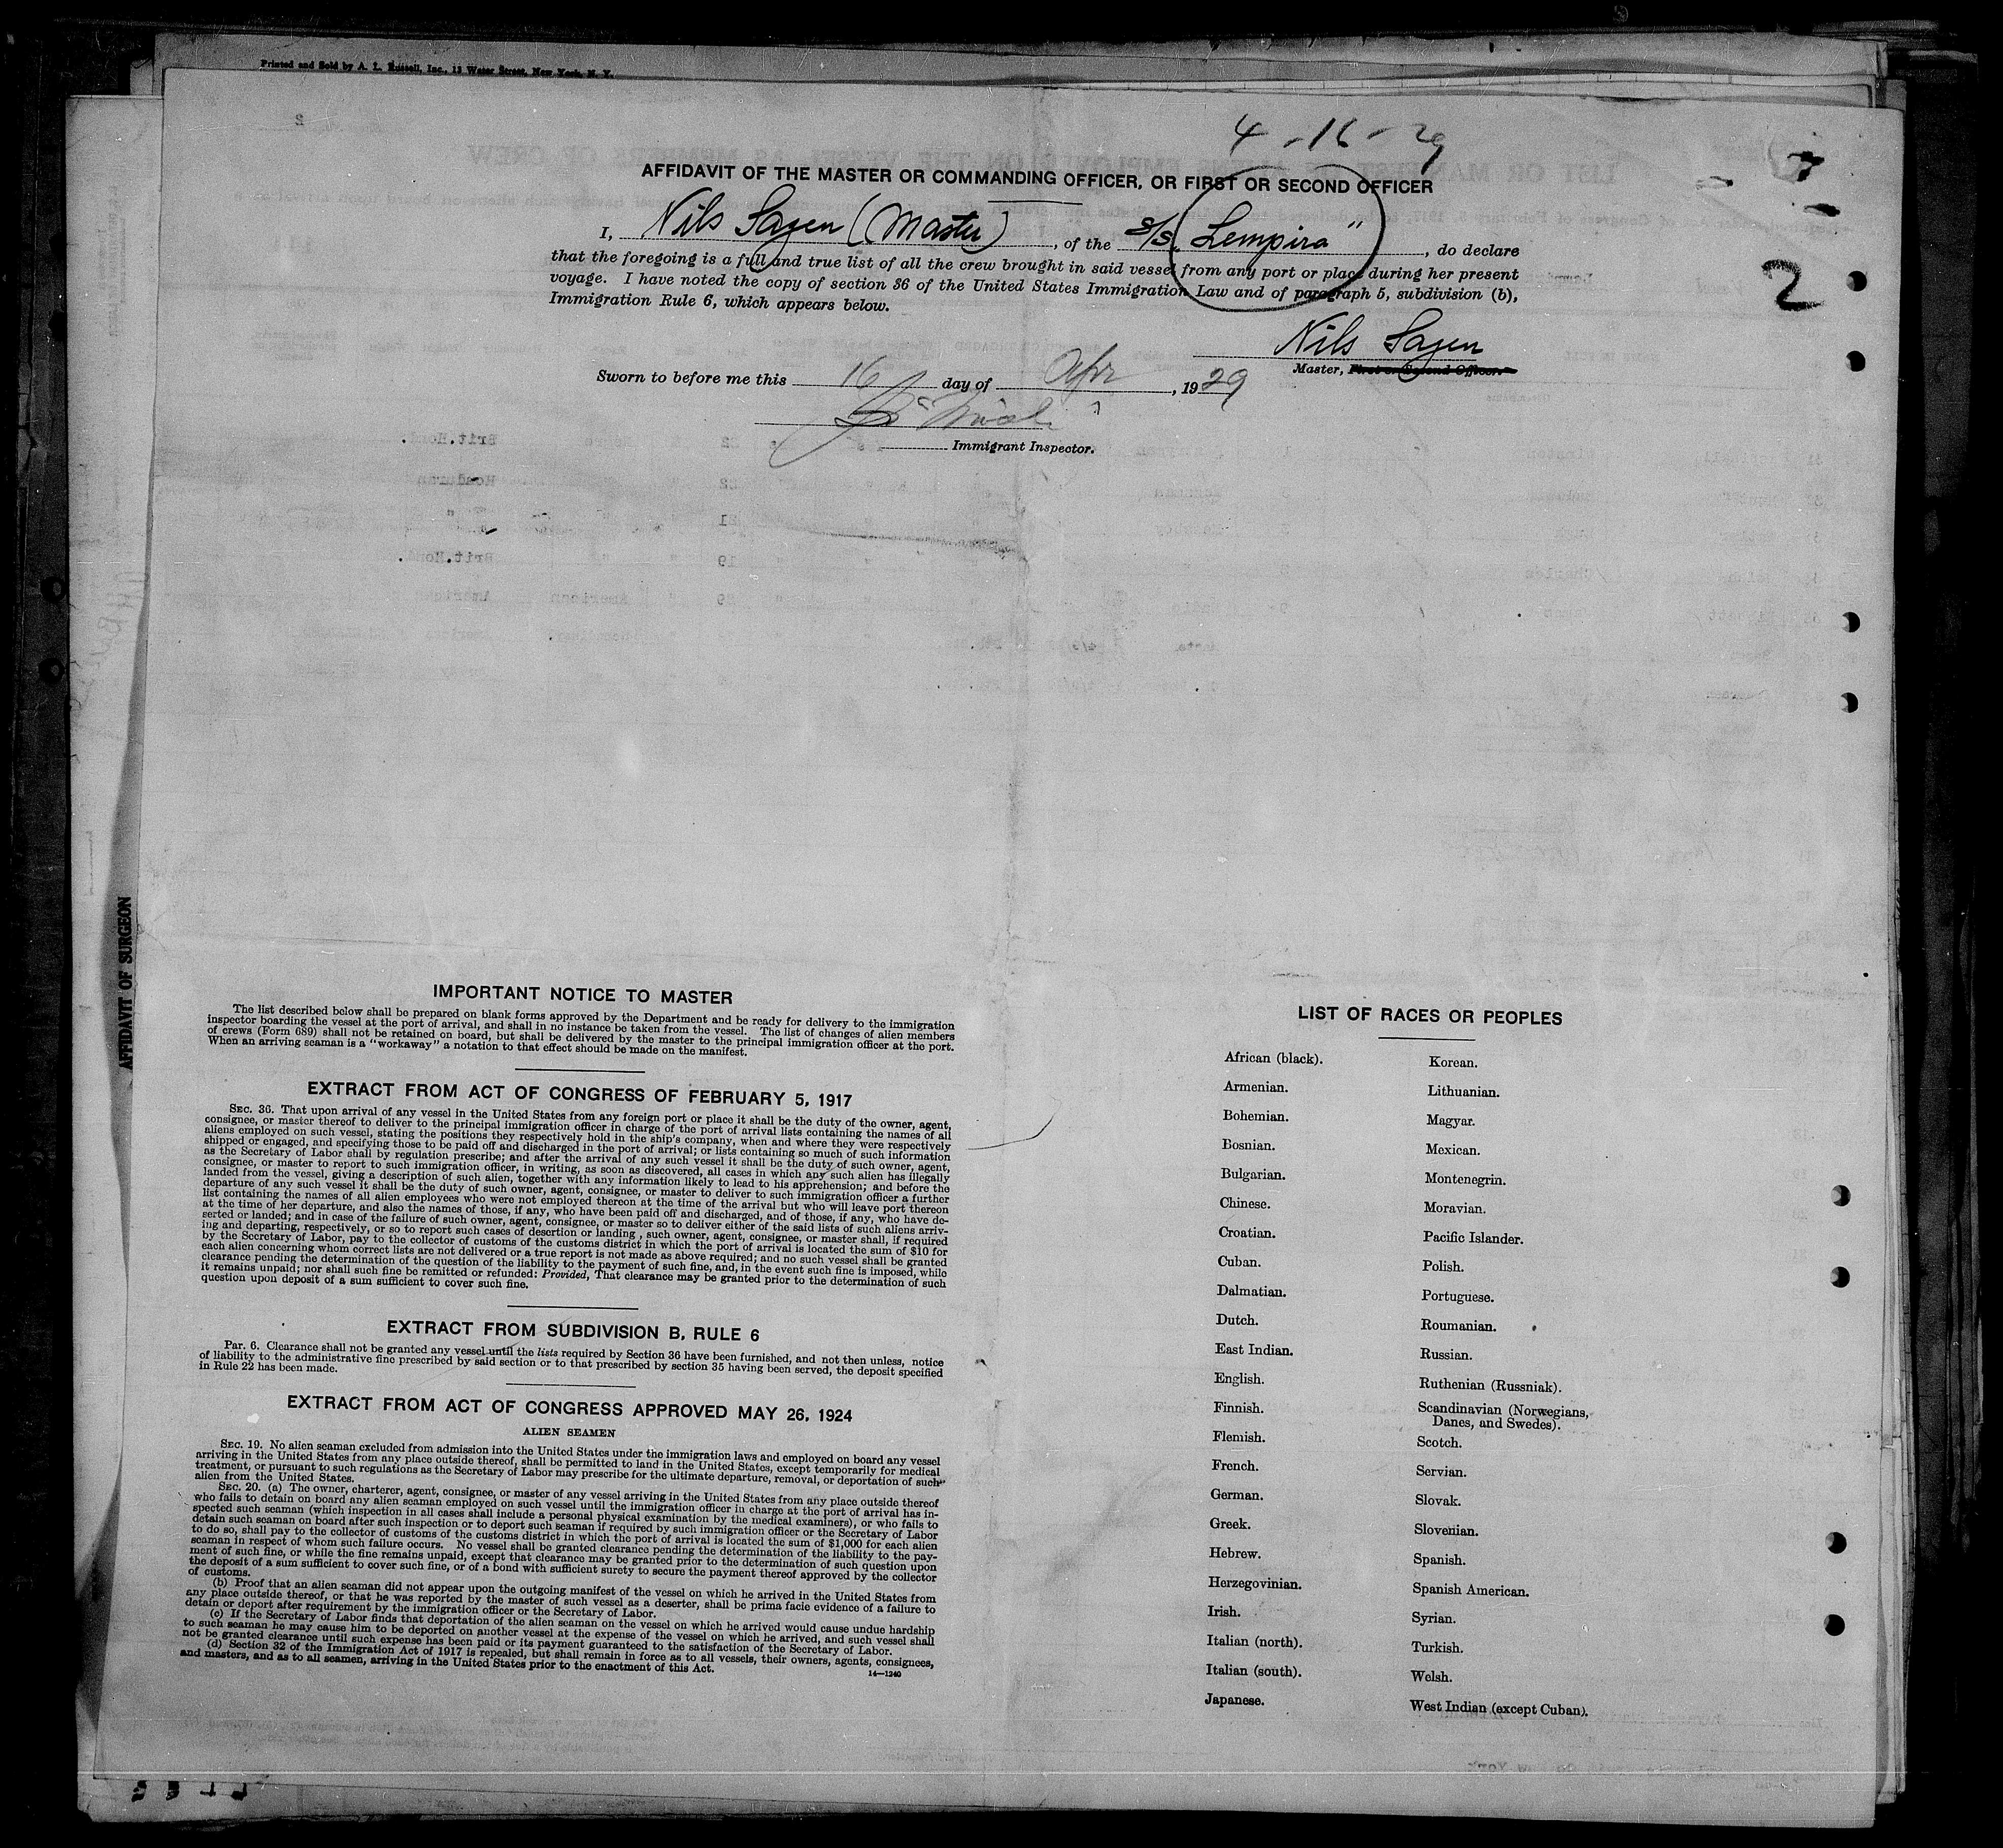 Printed and Sold by A. L. Russell, Inc., 13 Water Street, New York, N. Y.
4-16-29
AFFIDAVIT OF THE MASTER OR COMMANDING OFFICER, OR FIRST OR SECOND OFFICER
I, Nils Sagen (Master), of the S/S. Lempira", do declare
that the foregoing is a full and true list of all the crew brought in said vessel from any port or place during her present
voyage. I have noted the copy of section 36 of the United States Immigration Law and of paragraph 5, subdivision (b),
Immigration Rule 6, which appears below.
2
Nils Sagen
Master, First or Second Officer.
Sworn to before me this 16 day of Apr, 1929
Immigrant Inspector.
AFFIDAVIT OF SURGEON
IMPORTANT NOTICE TO MASTER
The list described below shall be prepared on blank forms approved by the Department and be ready for delivery to the immigration
inspector boarding the vessel at the port of arrival, and shall in no instance be taken from the vessel. The list of changes of alien members
of crews (Form 689) shall not be retained on board, but shall be delivered by the master to the principal immigration officer at the port.
When an arriving seaman is a "workaway" a notation to that effect should be made on the manifest.
EXTRACT FROM ACT OF CONGRESS OF FEBRUARY 5, 1917
SEC. 36. That upon arrival of any vessel in the United States from any foreign port or place it shall be the duty of the owner, agent,
consignee, or master thereof to deliver to the principal immigration officer in charge of the port of arrival lists containing the names of all
aliens employed on such vessel, stating the positions they respectively hold in the ship's company, when and where they were respectively
shipped or engaged, and specifying those to be paid off and discharged in the port of arrival; or lists containing so much of such information
as the Secretary of Labor shall by regulation prescribe; and after the arrival of any such vessel it shall be the duty of such owner, agent,
consignee, or master to report to such immigration officer, in writing, as soon as discovered, all cases in which any such alien has illegally
landed from the vessel, giving a description of such alien, together with any information likely to lead to his apprehension; and before the
departure of any such vessel it shall be the duty of such owner, agent, consignee, or master to deliver to such immigration officer a further
list containing the names of all alien employees who were not employed thereon at the time of the arrival but who will leave port thereon
at the time of her departure, and also the names of those, if any, who have been paid off and discharged, and of those, if any, who have de-
serted or landed; and in case of the failure of such owner, agent, consignee, or master so to deliver either of the said lists of such aliens arriv-
ing and departing, respectively, or so to report such cases of desertion or landing, such owner, agent, consignee, or master shall, if required
by the Secretary of Labor, pay to the collector of customs of the customs district in which the port of arrival is located the sum of $10 for
each alien concerning whom correct lists are not delivered or a true report is not made as above required; and no such vessel shall be granted
clearance pending the determination of the question of the liability to the payment of such fine, and, in the event such fine is imposed, while
it remains unpaid; nor shall such fine be remitted or refunded: Provided, That clearance may be granted prior to the determination of such
question upon deposit of a sum sufficient to cover such fine.
EXTRACT FROM SUBDIVISION B, RULE 6
Par. 6. Clearance shall not be granted any vessel until the lists required by Section 36 have been furnished, and not then unless, notice
of liability to the administrative fine prescribed by said section or to that prescribed by section 35 having been served, the deposit specified
in Rule 22 has been made.
EXTRACT FROM ACT OF CONGRESS APPROVED MAY 26, 1924
ALIEN SEAMEN
SEC. 19. No alien seaman excluded from admission into the United States under the immigration laws and employed on board any vessel
arriving in the United States from any place outside thereof, shall be permitted to land in the United States, except temporarily for medical
treatment, or pursuant to such regulations as the Secretary of Labor may prescribe for the ultimate departure, removal, or deportation of such
alien from the United States.
SEC. 20. (a) The owner, charterer, agent, consignee, or master of any vessel arriving in the United States from any place outside thereof
who fails to detain on board any alien seaman employed on such vessel until the immigration officer in charge at the port of arrival has in-
spected such seaman (which inspection in all cases shall include a personal physical examination by the medical examiners), or who fails to
detain such seaman on board after such inspection or to deport such seaman if required by such immigration officer or the Secretary of Labor
to do so, shall pay to the collector of customs of the customs district in which the port of arrival is located the sum of $1,000 for each alien
seaman in respect of whom such failure occurs. No vessel shall be granted clearance pending the determination of the liability to the pay-
ment of such fine, or while the fine remains unpaid, except that clearance may be granted prior to the determination of such question upon
the deposit of a sum sufficient to cover such fine, or of a bond with sufficient surety to secure the payment thereof approved by the collector
of customs.
(b) Proof that an alien seaman did not appear upon the outgoing manifest of the vessel on which he arrived in the United States from
any place outside thereof, or that he was reported by the master of such vessel as a deserter, shall be prima facie evidence of a failure to
detain or deport after requirement by the immigration officer or the Secretary of Labor.
(c) If the Secretary of Labor finds that deportation of the alien seaman on the vessel on which he arrived would cause undue hardship
to such seaman he may cause him to be deported on another vessel at the expense of the vessel on which he arrived, and such vessel shall
not be granted clearance until such expense has been paid or its payment guaranteed to the satisfaction of the Secretary of Labor.
(d) Section 32 of the Immigration Act of 1917 is repealed, but shall remain in force as to all vessels, their owners, agents, consignees,
and masters, and as to all seamen, arriving in the United States prior to the enactment of this Act.
14—1240
LIST OF RACES OR PEOPLES
African (black).
Armenian.
Bohemian.
Bosnian.
Bulgarian.
Chinese.
Croatian.
Cuban.
Dalmatian.
Dutch.
East Indian.
English.
Finnish.
Flemish.
French.
German.
Greek.
Hebrew.
Herzegovinian.
Irish.
Italian (north).
Italian (south).
Japanese.
Korean.
Lithuanian.
Magyar.
Mexican.
Montenegrin.
Moravian.
Pacific Islander.
Polish.
Portuguese.
Roumanian.
Russian.
Ruthenian (Russniak).
Scandinavian (Norwegians,
Danes, and Swedes).
Scotch.
Servian.
Slovak.
Slovenian.
Spanish.
Spanish American.
Syrian.
Turkish.
Welsh.
West Indian (except Cuban).